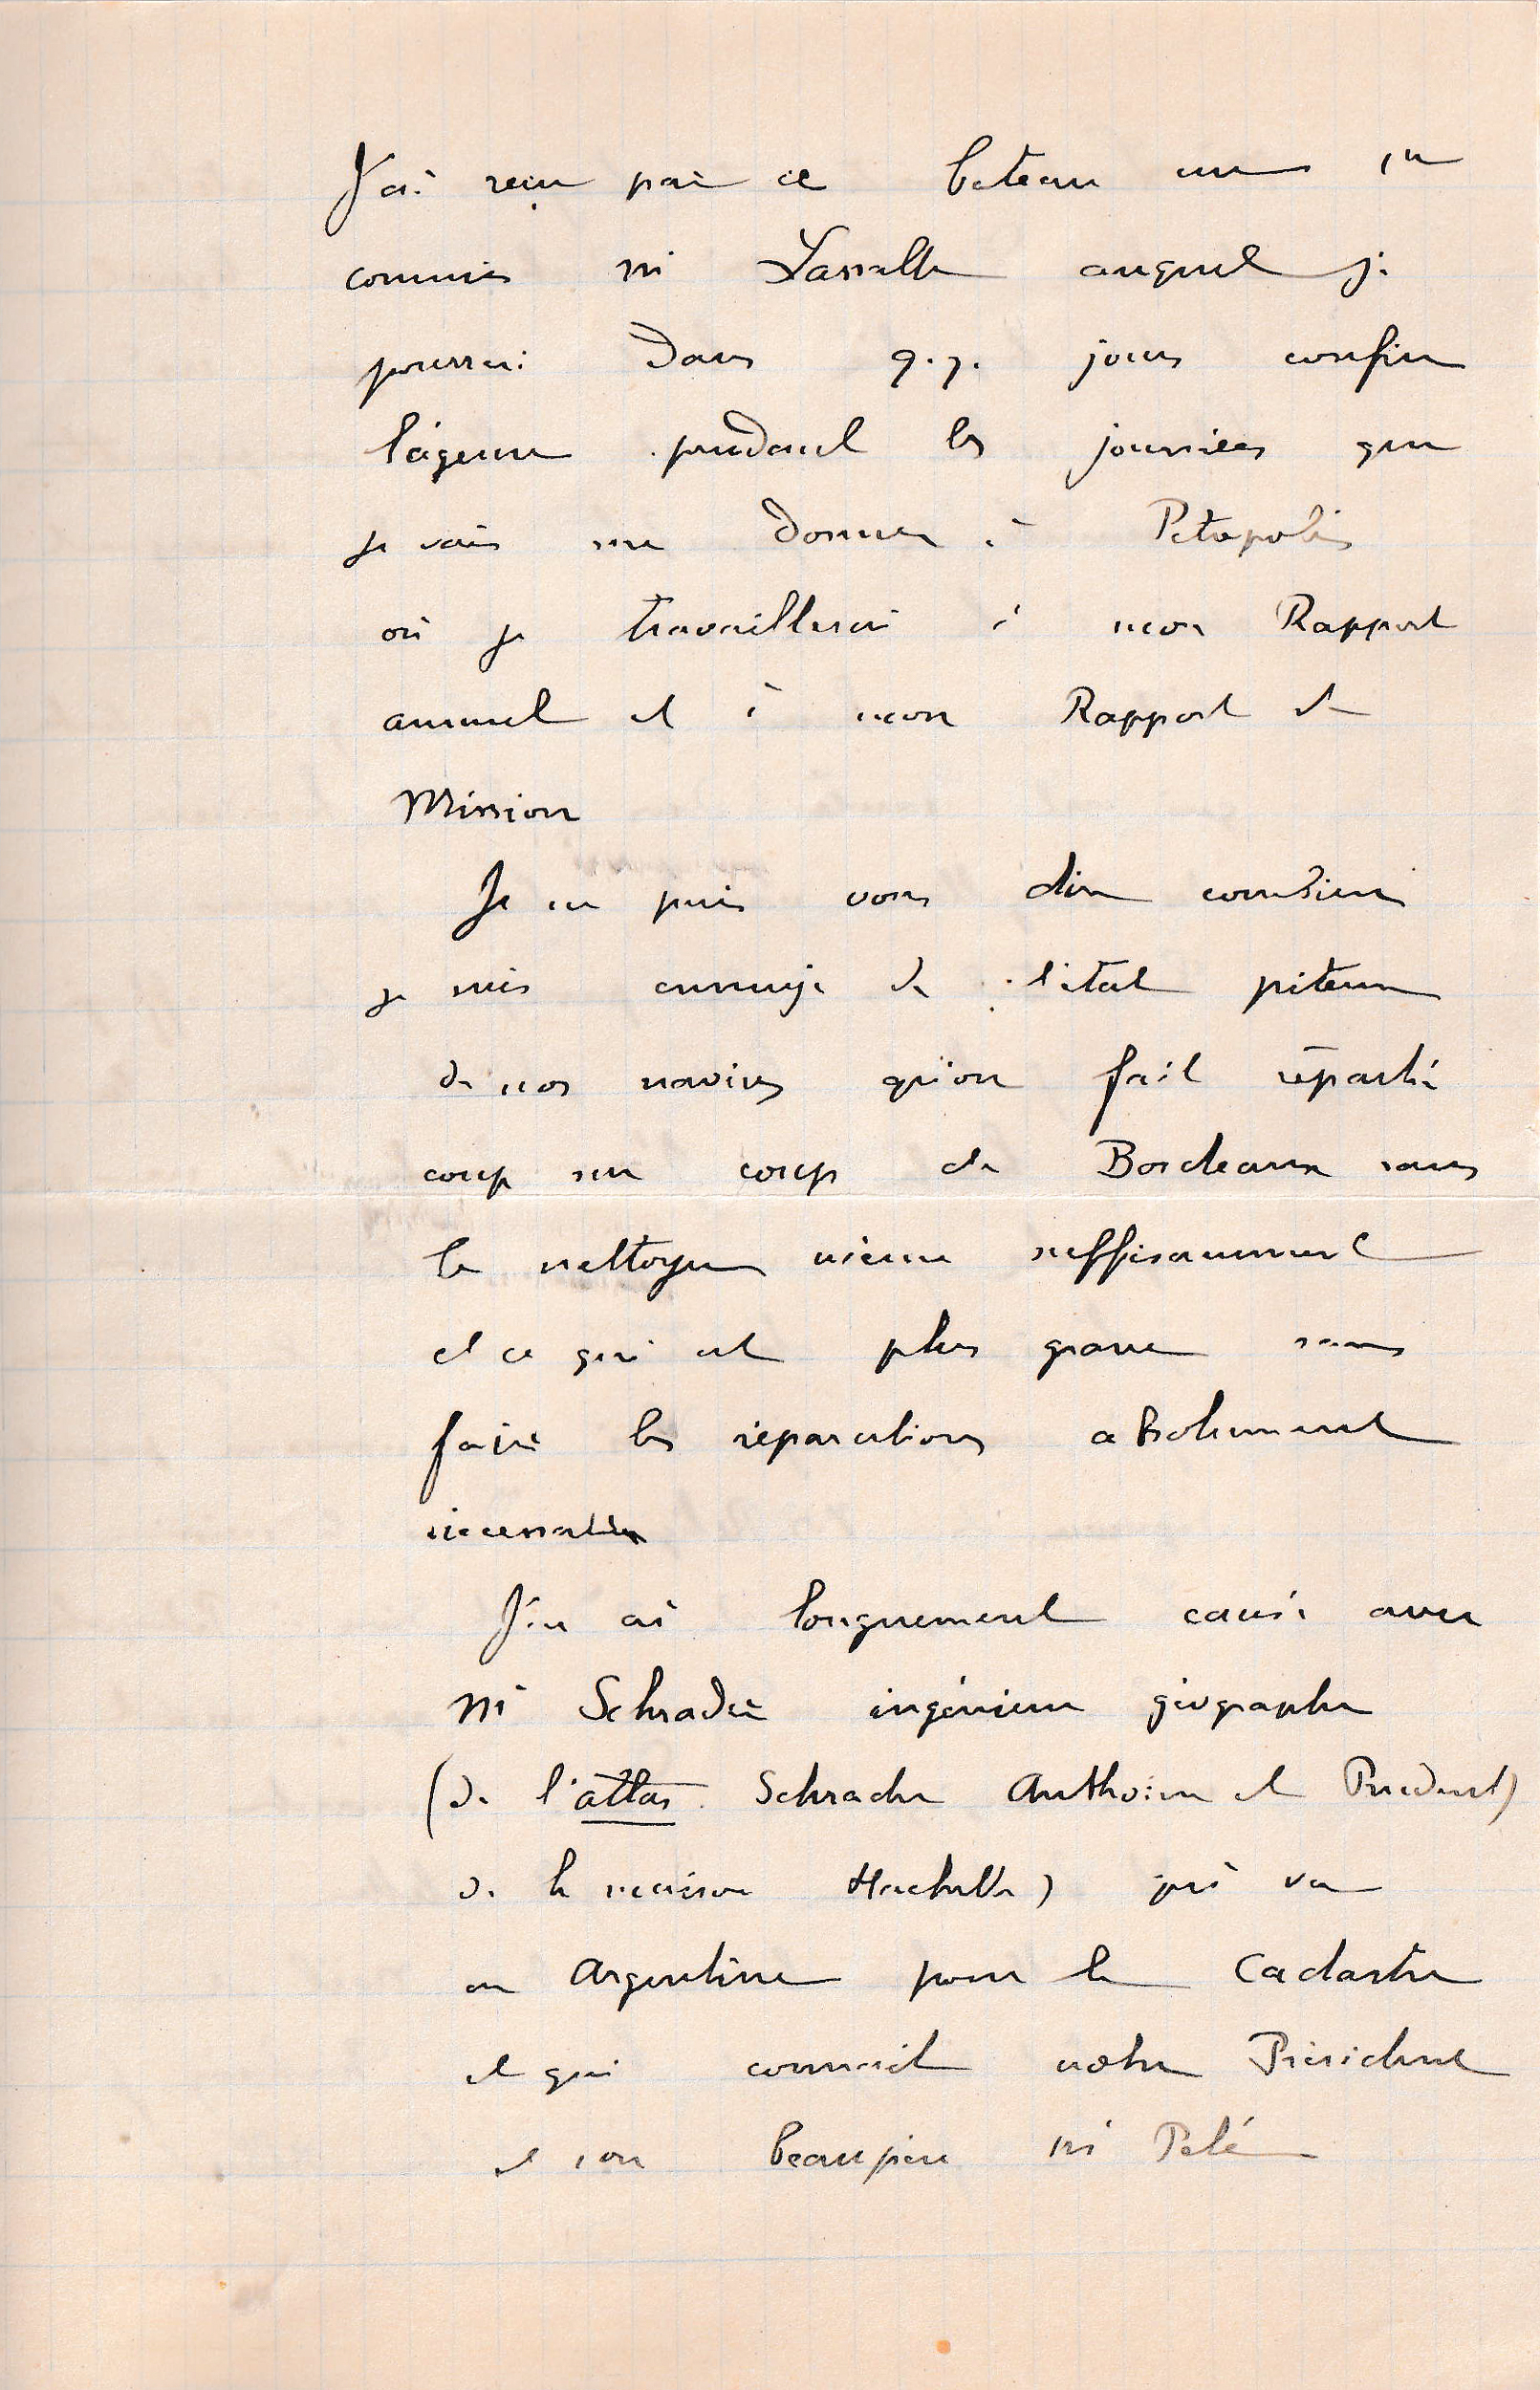 J'ai reçu par ce bateau un 1er
commis Mr Lassalle auquel je
pourrai dans q.q. jours confier
l'agence pendant les journées que
je vais me donner à Petropolis
où je travaillerai à mon Rapport
annuel et à mon Rapport de
Mission
Je ne puis vous dire combien
je suis ennuyé de l'état piteux
de nos navires qu'on fait repartir
coup sur coup de Bordeaux sans
les nettoyer même suffisamment
et ce qui est plus grave sans
faire les réparations absolument
nécessaires
J'en ai longuement causé avec
Mr Schrader ingénieur géographe
(de l'atlas Schrader Anthoine et Prudent)
de la maison Hachette) qui va
en Argentine pour le Cadastre
et qui connait notre Président
et son beau père Mr